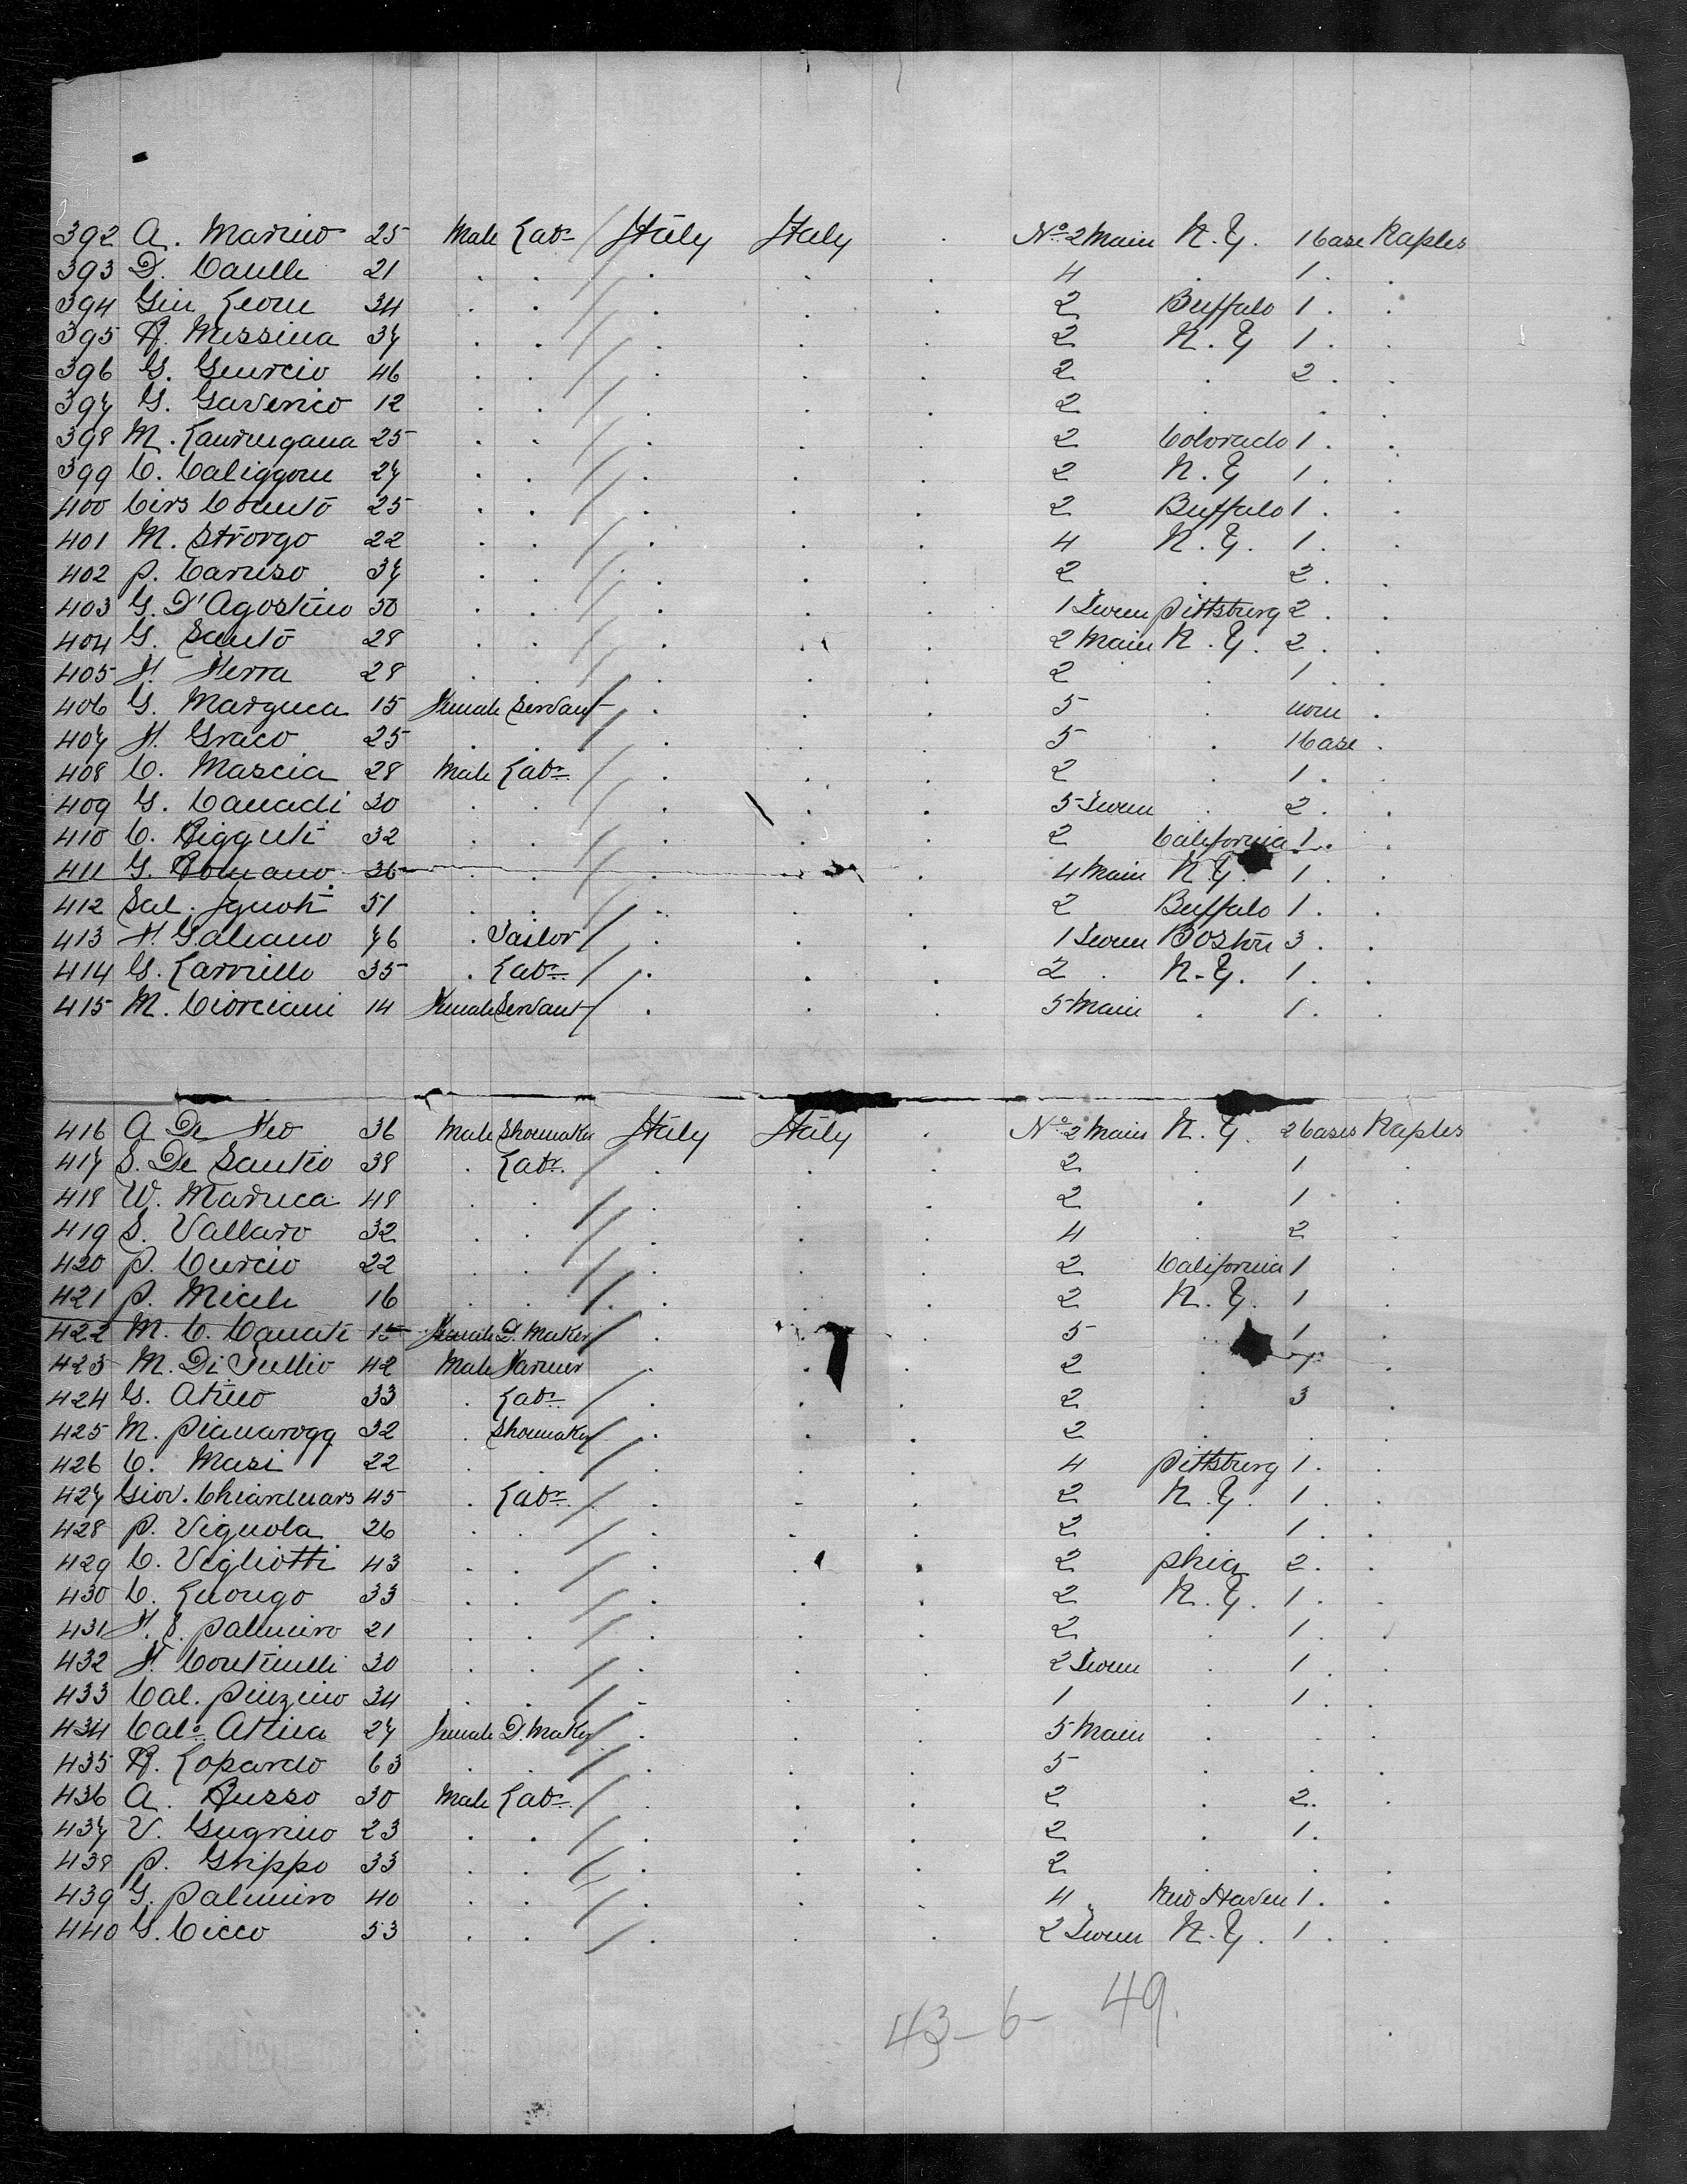 392 A. Marino 25 Male Labr Italy Italy . No 2 Main N.Y. 1 Case Naples
393 D. Caulle 21 . . . . . 4 . 1 . .
394 Giu Leone 34 . . . . . 2 Buffalo 1 . .
395 R. Messina 37 . . . . . 2 N.Y 1 . .
396 G. Gurcio 46 . . . . . 2 . 2 . .
397 G. Saverico 12 . . . . . 2 . . .
398 M. 25 . . . . . 2 Colorado 1 . .
399 C. 27 . . . . . 2 N.Y 1 . .
400 Cirs 25 . . . . . 2 Buffalo 1 . .
401 M. Strorgo 22 . . . . . 4 N.Y. 1 . .
402 P. Caruso 37 . . . . . 2 . 2 . .
403 G. D'Agostino 30 . . . . . 1 Pittsburg 2 . .
404 G. Santo 28 . . . . . 2 Main N.Y. 2 . .
405 F. Ferra 28 . . . . . 2 . 1 . .
406 G. Maruca 15 Female Servant . . . 5 . none .
407 F. Graco 25 . . . . . 5 . 1 Case .
408 C. Mascia 28 Male Labr . . . 2 . 1 . .
409 G. Canadi 30 . . . . . 5 . 2 . .
410 C. 32 . . . . . 2 California 1 . .
411 G. Romano 36 . . . . . 4 Main N.Y. 1 . .
412 Sal. 51 . . . . . 2 Buffalo 1 . .
413 F. Galiano 46 . Tailor . . . 1 Boston 3 . .
414 G. Carrillo 35 . Labr . . . 2 . N.Y. 1 . .
415 M. Ciorciani 14 Female Servant . . . 5 Main . 1 . .
416 A De Feo 36 Male Shoemaker Italy Italy . No 2 Main N.Y. 2 Cases Naples
417 S. De Santio 38 . Labr . . . 2 . 1 .
418 W. Maruca 48 . . . . . 2 . 1 .
419 S. Vallaro 32 . . . . . 4 . 2 .
420 P. Curcio 22 . . . . . 2 California 1 .
421 P. Miceli 16 . . . . . 2 N.Y. 1 .
422 M. C. 15 Female D. Maker . . . 5 . 1 .
423 M. Di Tullio 42 Male Farmer . . . 2 . 1 .
424 G. Atino 33 . Labr . . . 2 . 3 .
425 M. 32 . Shoemaker . . . 2 . . .
426 C. Masi 22 . . . . . 4 Pittsburg 1 . .
427 Giov. 45 . Labr . . . 2 N.Y. 1 . .
428 P. Vignola 26 . . . . . 2 . 1 . .
429 C. Vigliotti 43 . . . . . 2 Phia 2 . .
430 C. Luongo 33 . . . . . 2 N.Y. 1 . .
431 F. S. Palmiro 21 . . . . . 2 . 1 . .
432 F. Continelli 30 . . . . . 2 . 1 . .
433 Cal. Pinzino 34 . . . . . 1 . 1 . .
434 Calo Atina 27 Female D. Maker . . . 5 Main . . .
435 R. Lopardo 63 . . . . . 5 . . .
436 A. Russo 30 Male Labr . . . 2 . 2 . .
437 V. Gugnino 23 . . . . . 2 . 1 .
438 P. Grippo 33 . . . . . 2 . . .
439 G. Palmiro 40 . . . . . 4 New Haven 1 . .
440 G. Cicco 53 . . . . . 2 N.Y. 1 . .
43-6- 49.